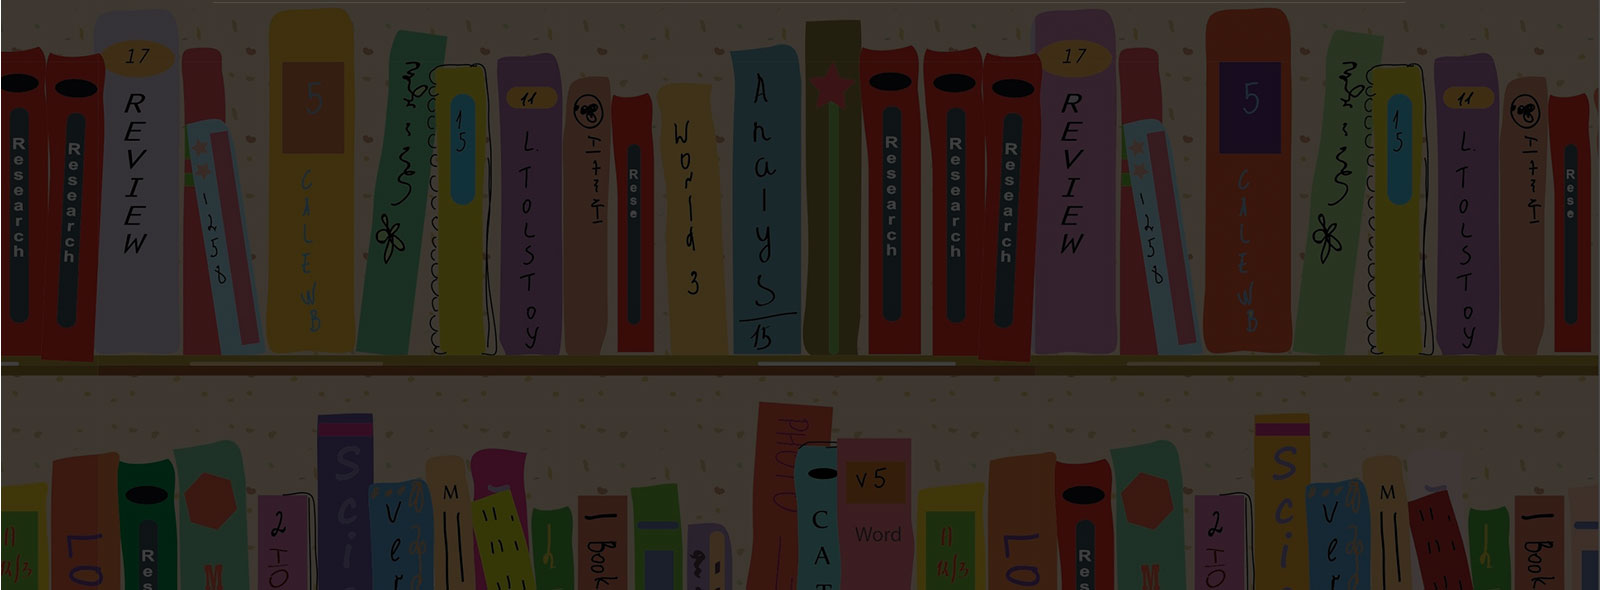 Research
Research
17
REVIEW
1258
5
CALEWB
15
11
L.TOLSTOY
Rese
World 3
Analys
15
Research
Research
Research
17
REVIEW
1258
5
CALEWB
15
11
L.TOLSTOY
Rese
LO
Res
M
2
Sci
Ver
M
1 Book
PHOTO
CAT
v5
Word
A
LO
Res
M
2
Sci
Ver
M
1 Book